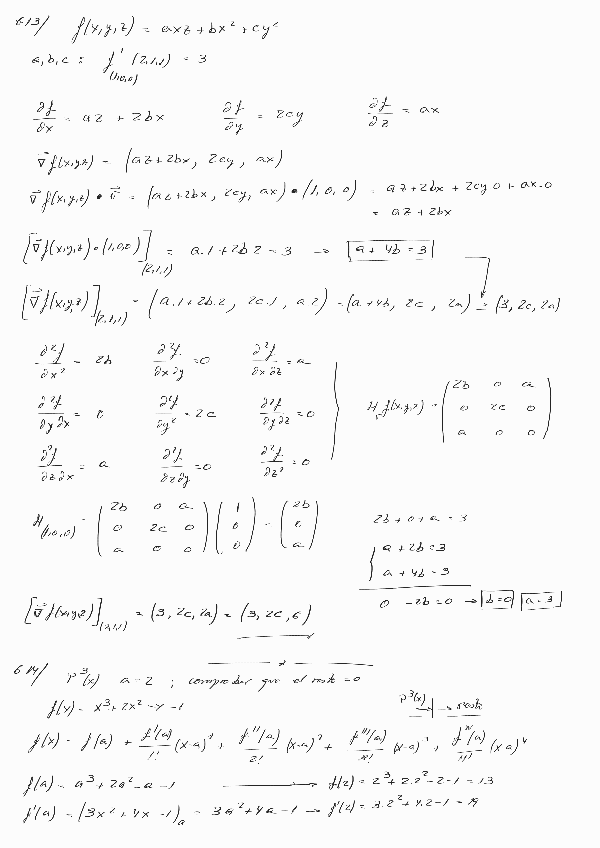 613/ f(x,y,z) = axz + bx² + cy²
a, b, c : f'(1,0,0) (2,1,1) = 3
∂f/∂x = az + 2bx ∂f/∂y = 2cy ∂f/∂z = ax
∇f(x,y,z) = (az+2bx, 2cy, ax)
∇f(x,y,z) • v = (az+2bx, 2cy, ax) • (1, 0, 0) = az+2bx + 2cy 0 + ax·0
= az + 2bx
[∇f(x,y,z)•(1,0,0)](2,1,1) = a·1 + 2b 2 = 3 → a + 4b = 3
[∇f(x,y,z)](2,1,1) = (a·1 + 2b·2, 2c·1, a 2) = (a+4b, 2c, 2a) = (3, 2c, 2a)
∂²f/∂x² = 2b ∂²f/∂x∂y = 0 ∂²f/∂x∂z = a
∂²f/∂y∂x = 0 ∂²f/∂y² = 2c ∂²f/∂y∂z = 0 H f(x,y,z) = (2b 0 a / 0 2c 0 / a 0 0)
∂²f/∂z∂x = a ∂²f/∂z∂y = 0 ∂²f/∂z² = 0
H(1,0,0) = (2b 0 a / 0 2c 0 / a 0 0) (1 / 0 / 0) = (2b / 0 / a) 2b + 0 + a = 3
a + 2b = 3
a + 4b = 3
0 - 2b = 0 → b = 0 a = 3
[∇f(x,y,z)](2,1,1) = (3, 2c, 2a) = (3, 2c, 6)
614/ P³(x) a = 2 ; comprobar que el resto = 0
f(x) = x³ + 2x² - x - 1 P³(x) → resto
f(x) = f(a) + f'(a)/1! (x-a)¹ + f''(a)/2! (x-a)² + f'''(a)/3! (x-a)³ + (x-a)⁴
f(a) = a³ + 2a² - a - 1 → f(2) = 2³ + 2·2² - 2 - 1 = 13
f'(a) = (3x² + 4x - 1)a = 3a² + 4a - 1 → f'(2) = 3·2² + 4·2 - 1 = 19